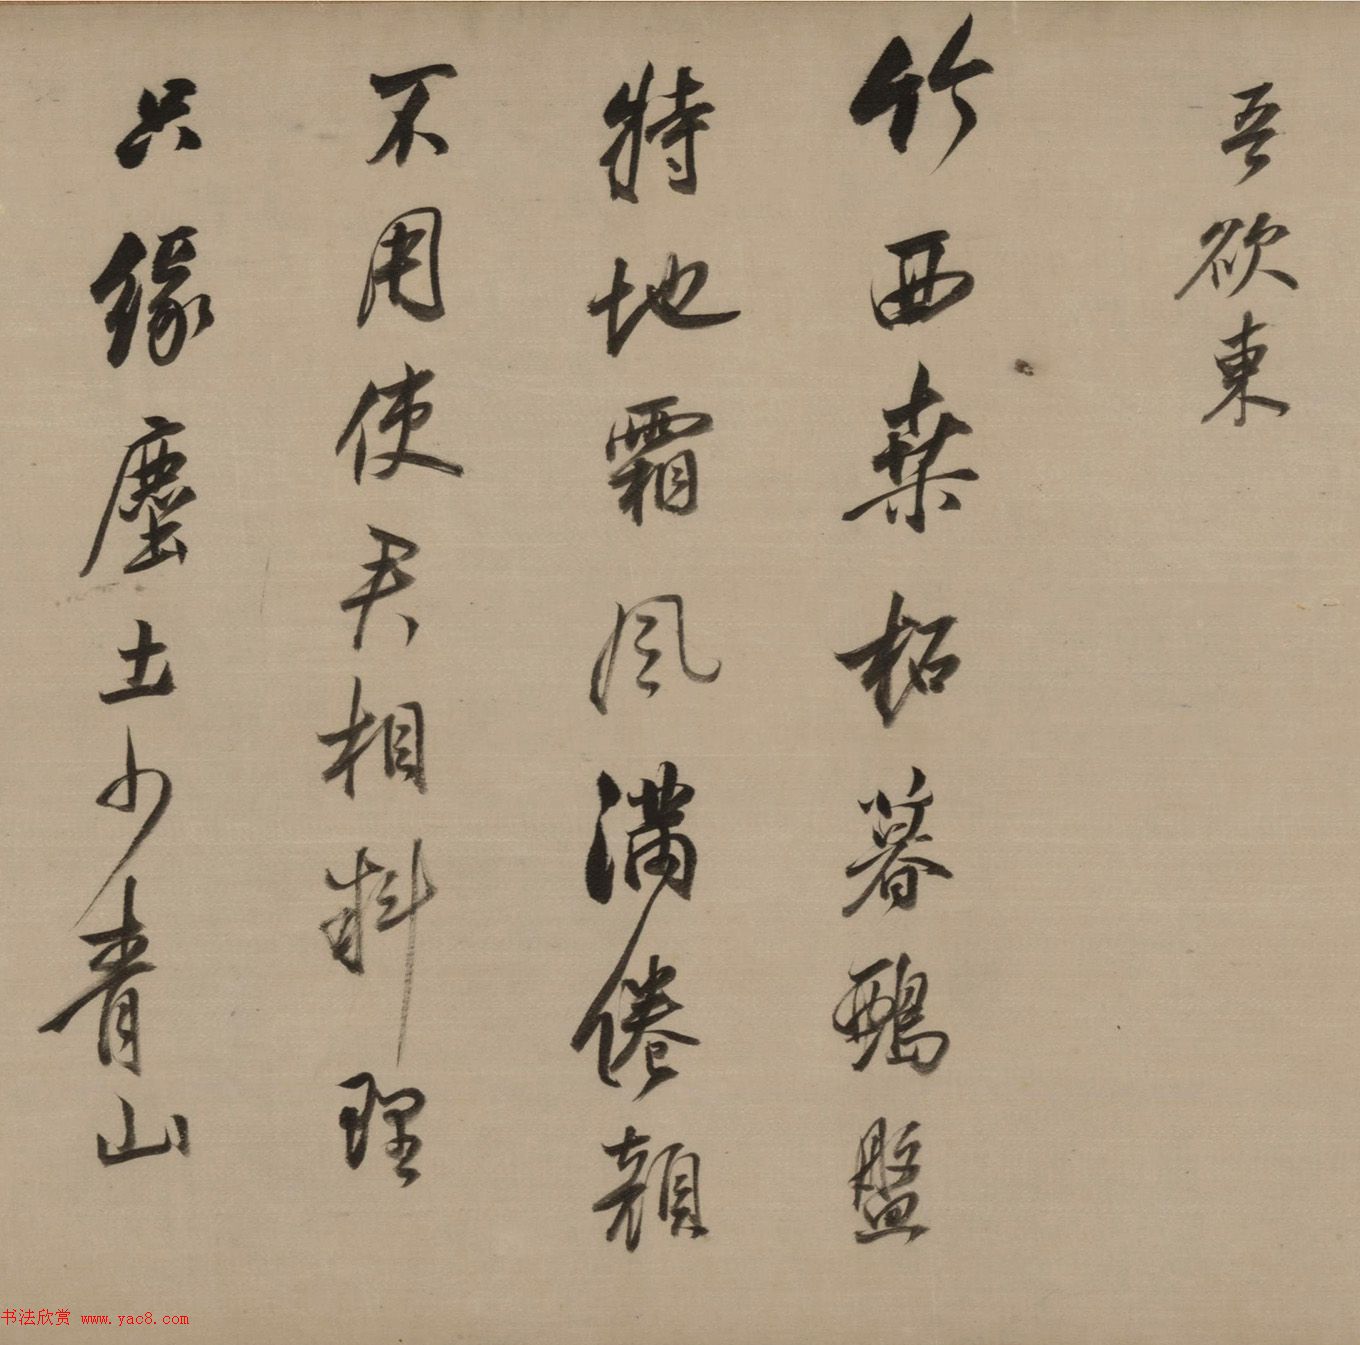 吾欲東
竹西桑柘暮鵶盤
特地霜風滿倦顏
不用使君相料理
只緣塵土少青山
书法欣赏 www.yac8.com